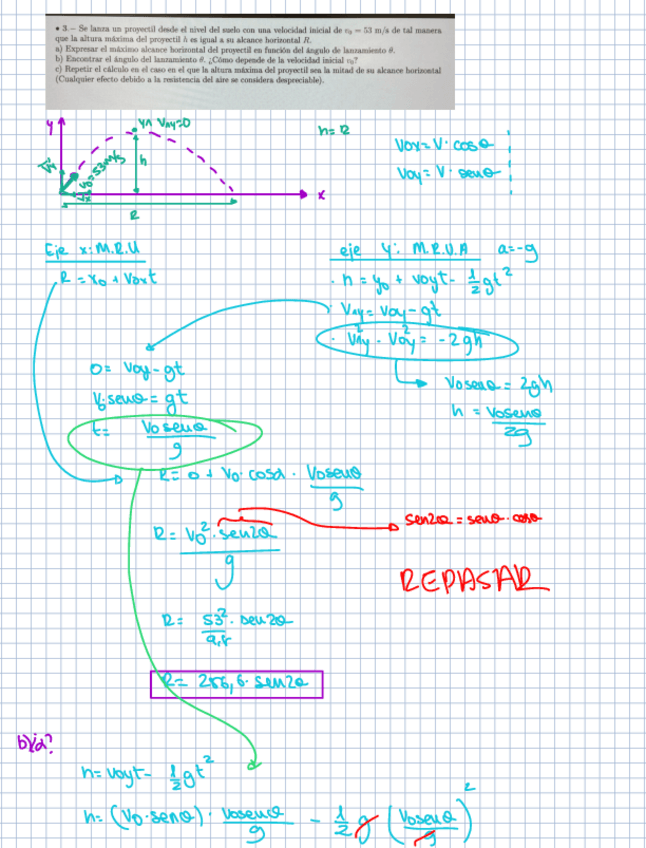 • 3.– Se lanza un proyectil desde el nivel del suelo con una velocidad inicial de v₀ = 53 m/s de tal manera
que la altura máxima del proyectil h es igual a su alcance horizontal R.
a) Expresar el máximo alcance horizontal del proyectil en función del ángulo de lanzamiento θ.
b) Encontrar el ángulo del lanzamiento θ. ¿Cómo depende de la velocidad inicial v₀?
c) Repetir el cálculo en el caso en el que la altura máxima del proyectil sea la mitad de su alcance horizontal
(Cualquier efecto debido a la resistencia del aire se considera despreciable).
y
Vay=0
h=R
Vox = V · cosθ
Voy = V · senθ
V0=53m/s
h
x
R
Eje x: M.R.U
R = x0 + Voxt
eje y: M.R.U.A a=-g
· h = y0 + voyt - 1/2 gt²
· Vay = Voy - gt
· Vay² - Voy² = -2gh
0 = Voy - gt
V0 senθ = gt
t = V0 senθ / g
V0senθ = 2gh
h = V0senθ / 2g
R = 0 + V0 · cosα · V0senθ / g
R = V0² · sen2θ / g
sen2θ = senθ · cosθ
REPASAR
R = 53² · sen2θ / 9,8
R = 286,6 · sen2θ
b) ¿α?
h = voyt - 1/2 gt²
h = (V0 · senθ) · V0senθ / g - 1/2 g (V0senθ / g)²